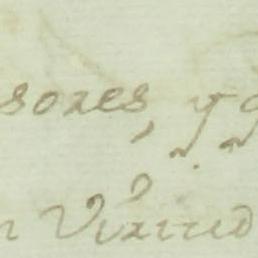 sores, y g
n Virtud